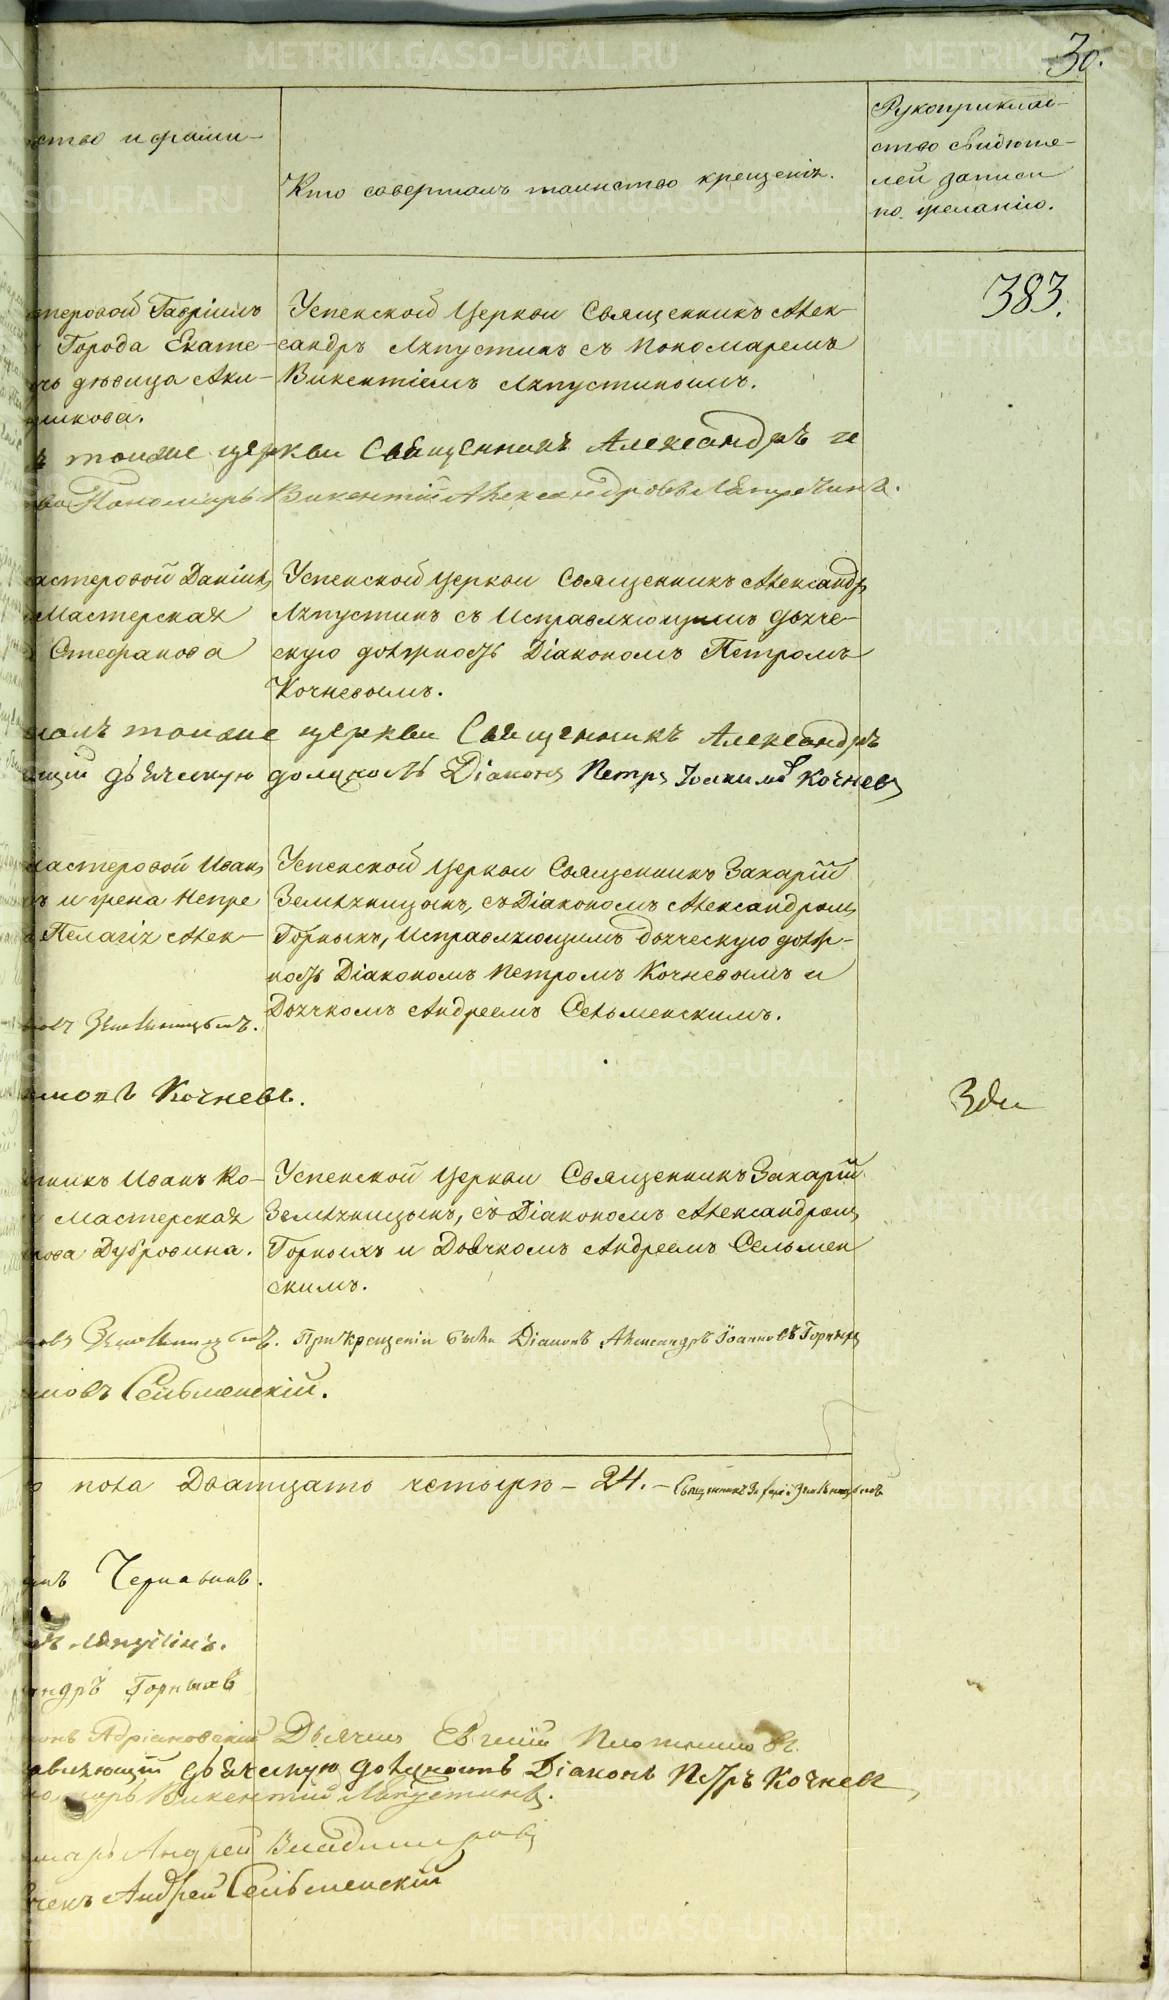 30.
ство и фами-
Кто совершалъ таинство крещенія.
Рукоприклад-
ство свидѣте-
лей записи
по желанію.
383.
стеровой Гавріилъ
Города Екате-
дѣвица Аки-
шкова.
Успенской Церкви Священникъ Алек-
сандръ Ляпустинъ съ Пономаремъ
Викентіемъ Ляпустинымъ.
тойже церкви Священникъ Александръ
Пономарь Викентій Александровъ Ляпустинъ.
мастеровой Даніилъ
Мастерская
Стефанова
Успенской Церкви Священникъ Александръ
Ляпустинъ съ Исправляющимъ дьяче-
скую должность Діакономъ Петромъ
Кочневымъ.
тойже церкви Священникъ Александръ
щій дьяческую должность Діаконъ Петръ Іоакимовъ Кочневъ
мастеровой Иванъ
и жена Непре
Пелагія Алек-
Успенской Церкви Священникъ Захарій
Земляницынъ, съ Діакономъ Александромъ
Горныхъ, Исправляющимъ дьяческую долж-
ность Діакономъ Петромъ Кочневымъ и
Дьячкомъ Андреемъ Сельменскимъ.
Земляницынъ.
Кочневъ.
Зди
никъ Иванъ Ко-
Мастерская
рова Дубровина.
Успенской Церкви Священникъ Захарій
Земляницынъ, съ Діакономъ Александромъ
Горныхъ и Дьячкомъ Андреемъ Сельмен
скимъ.
Земляницынъ. При крещеніи былъ Діаконъ Александръ Іоанновъ Горныхъ
мовъ Сельменскій.
пола Двадцать четыре - 24. - Священникъ Захарій Земляницынъ
Чернавинъ.
Ляпустинъ.
андръ Горныхъ
Адріановскій Дьячекъ Евгеній Плотниковъ.
авляющій дьяческую должность Діаконъ Петръ Кочневъ
номарь Викентій Ляпустинъ.
марь Андрей Владимировъ
чекъ Андрей Сельменскій
METRIKI.GASO-URAL.RU